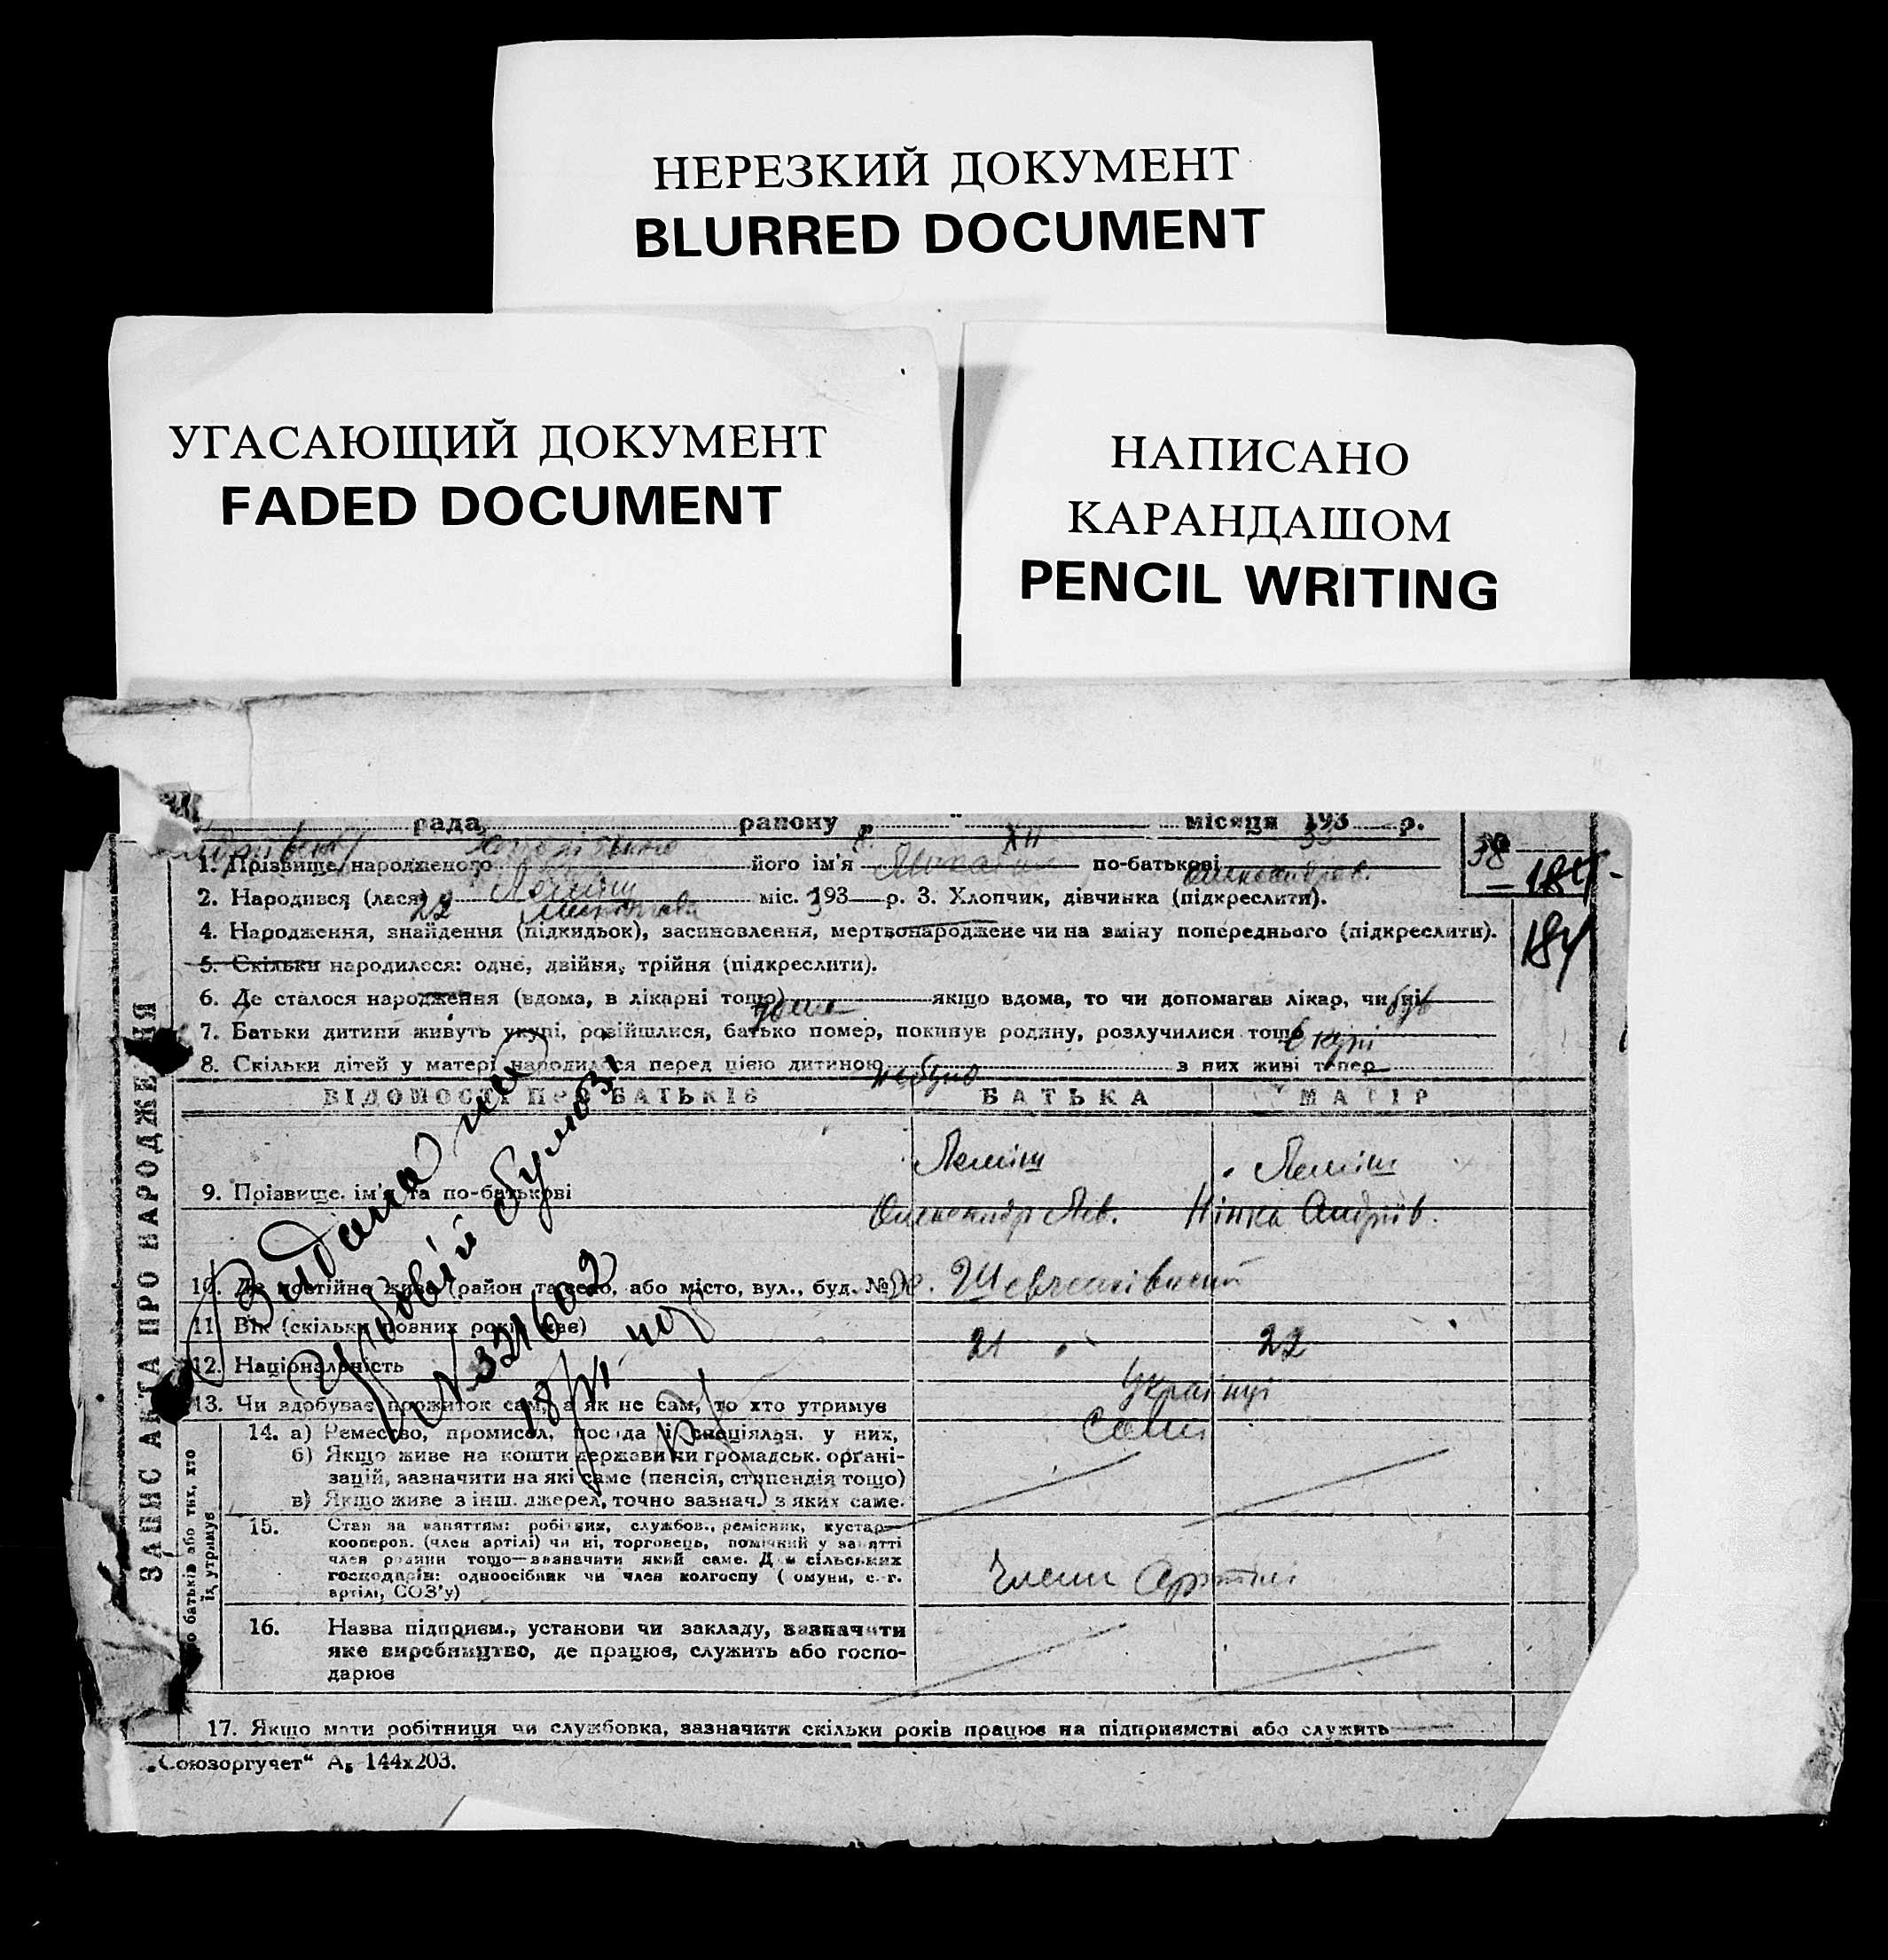 НЕРЕЗКИЙ ДОКУМЕНТ
BLURRED DOCUMENT
УГАСАЮЩИЙ ДОКУМЕНТ
FADED DOCUMENT
НАПИСАНО
КАРАНДАШОМ
PENCIL WRITING
рада района „ “ місяця 193 р.
XII 33
38
1. Прізвище народженого його ім'я по-батькові
184
Леміш
2. Народився (лася) 22 міс. 193 3 р. 3. Хлопчик, дівчинка (підкреслити).
4. Народження, знайдення (підкидьок), засиновлення, мертвонароджене чи на зміну попереднього (підкреслити).
184
5. Скільки народилося: одне, двійня, трійня (підкреслити).
6. Де сталося народження (вдома, в лікарні тощо) якщо вдома, то чи допомагав лікар, чи ні
7. Батьки дитини живуть укупі, розійшлися, батько помер, покинув родину, розлучилися тощо вкупі
8. Скільки дітей у матері народилося перед цією дитиною не було з них живі тепер
ВІДОМОСТІ ПРО БАТЬКІВ БАТЬКА МАТІР
Леміш Леміш
9. Прізвище, ім'я та по-батькові
Олександр Яв. Нінка Андріїв.
10. Де постійно живе (район та село, або місто, вул., буд. №)
11. Вік (скільки повних років має) 21 22
12. Національність Українці
13. Чи здобуває прожиток сам, а як не сам, то хто утримує Сами
14. а) Ремество, промисел, посада і спеціялян. у них,
б) Якщо живе на кошти держави чи громадськ. органі-
зацій, зазначити на які саме (пенсія, стипендія тощо)
в) Якщо живе з інш. джерел, точно зазнач. з яких саме.
15. Стан за заняттям: робітник, службов., ремісник, кустар—
кооперов. (член артілі) чи ні, торговець, помічний у занятті
член родини тощо—зазначити який саме. Для сільських
господарів: одноосібник чи член колгоспу (комуни, с.-г.
артілі, СОЗ'у)
Члени Артілі
16. Назва підприєм., установи чи закладу, зазначити
яке виробництво, де працює, служить або госпо-
дарює
17. Якщо мати робітниця чи службовка, зазначити скільки років працює на підприємстві або служить
„Союзоргучет“ А5 144х203.
ЗАПИС АКТА ПРО НАРОДЖЕННЯ
о батьків або тих, хто
їх утримує
Видана на
№ 321602